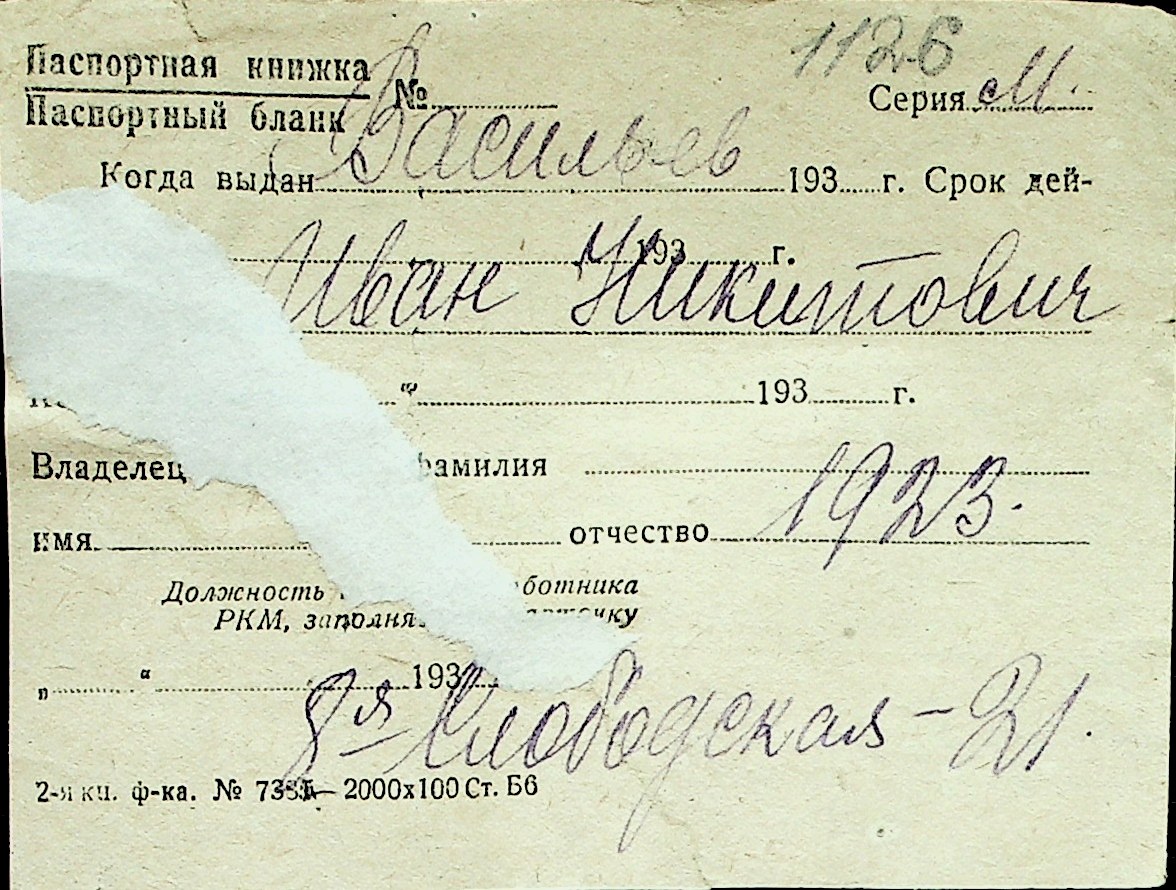 1126
Паспортная книжка
Паспортный бланк
№
Серия М.
Васильев
Когда выдан 193 г. Срок дей-
193 г.
Иван Никитович
“ 193 г.
Владелец фамилия
1923.
имя отчество
Должность ботника
РКМ, заполня
„ “ 193
8я Слободская – 21.
2-я кн. ф-ка. № – 2000х100 Ст. Б6